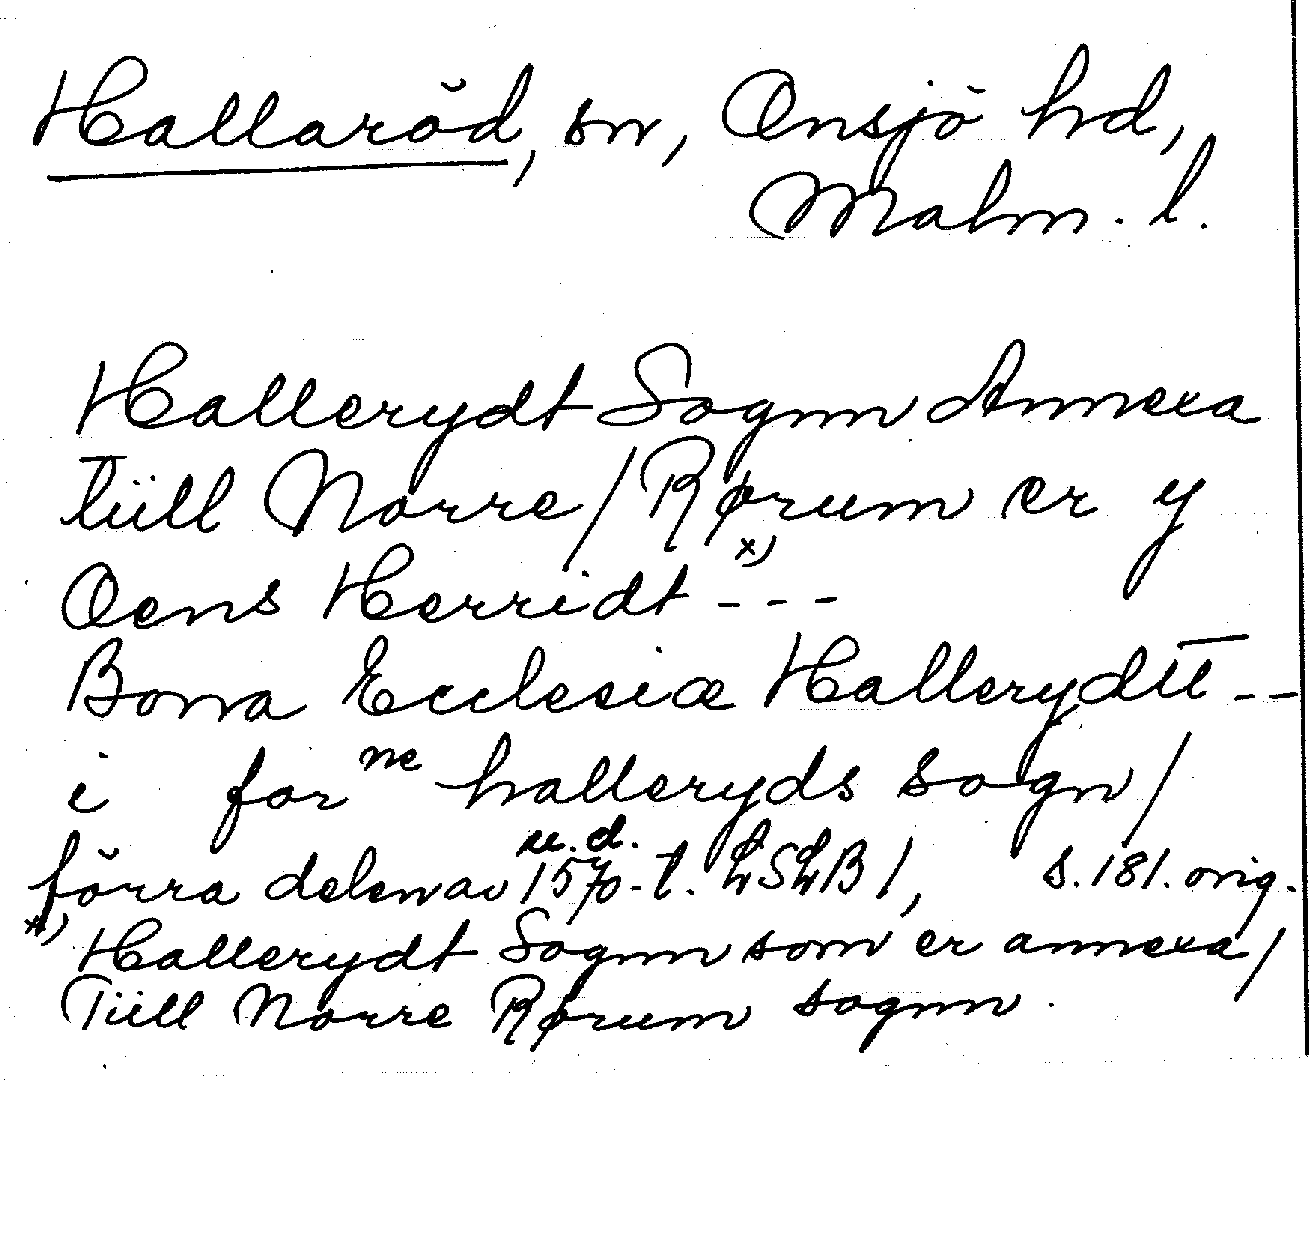 Hallaröd, sn, Onsjö hd,
Malm. l.
Hallerydt Sognn Annexa
tiill Norre / Rørum er y
Oens Herridt x) - - -
Bona Ecclesiæ Hallerydtt - -
i for ne halleryds sogn /
u. d.
förra delen av 1570-t. LSLB 1, s. 181. orig.
x) Hallerydt Sognn som er annexa /
Tiill Norre Rørum sognn.